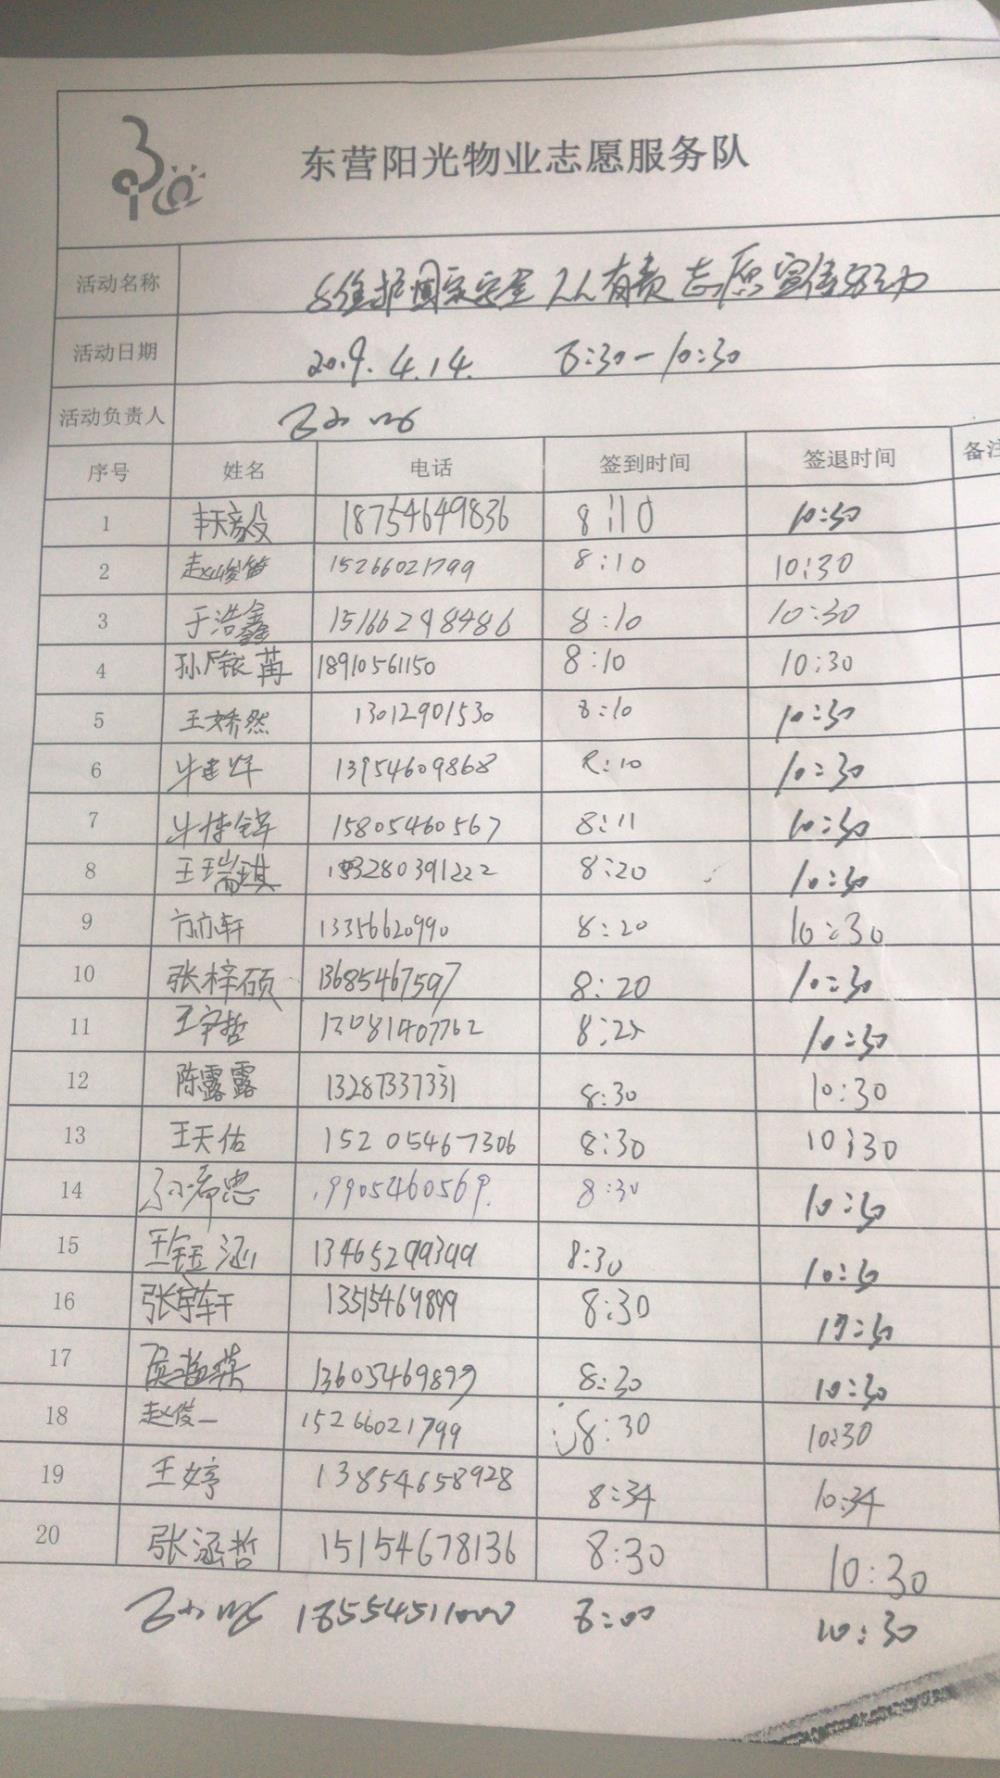 东营阳光物业志愿服务队
活动名称 维护国家安全 人人有责 志愿宣传活动
活动日期 2019.4.14. 8:30-10:30
活动负责人
序号 姓名 电话 签到时间 签退时间 备注
1 18754649836 8:10 10:30
2 赵峻笛 15266021799 8:10 10:30
3 于浩鑫 15166298486 8:10 10:30
4 18910561150 8:10 10:30
5 王娇然 13012901530 8:10 10:30
6 牛建辉 13954609868 8:10 10:30
7 15805460567 8:11 10:30
8 王瑞琪 8:20 10:30
9 13356620990 8:20 10:30
10 张梓硕 13685467597 8:20 10:30
11 王宇哲 13081407762 8:25 10:30
12 陈露露 13287337331 8:30 10:30
13 王天佑 15205467306 8:30 10:30
14 孙希忠 19905460569. 8:30 10:30
15 王钰涵 13465299399 8:30 10:30
16 张宇轩 13515469899 8:30 10:30
17 13605469899 8:30 10:30
18 赵俊一 15266021799 8:30 10:30
19 王婷 13854658928 8:34 10:34
20 张涵哲 15154678136 8:30 10:30
18554511000 8:00 10:30